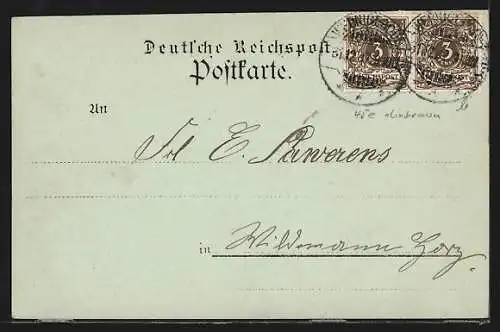 3 3
Deutsche Reichspost
Postkarte.
45e
An
Frl E. Pawerens
in Wildemann Harz.